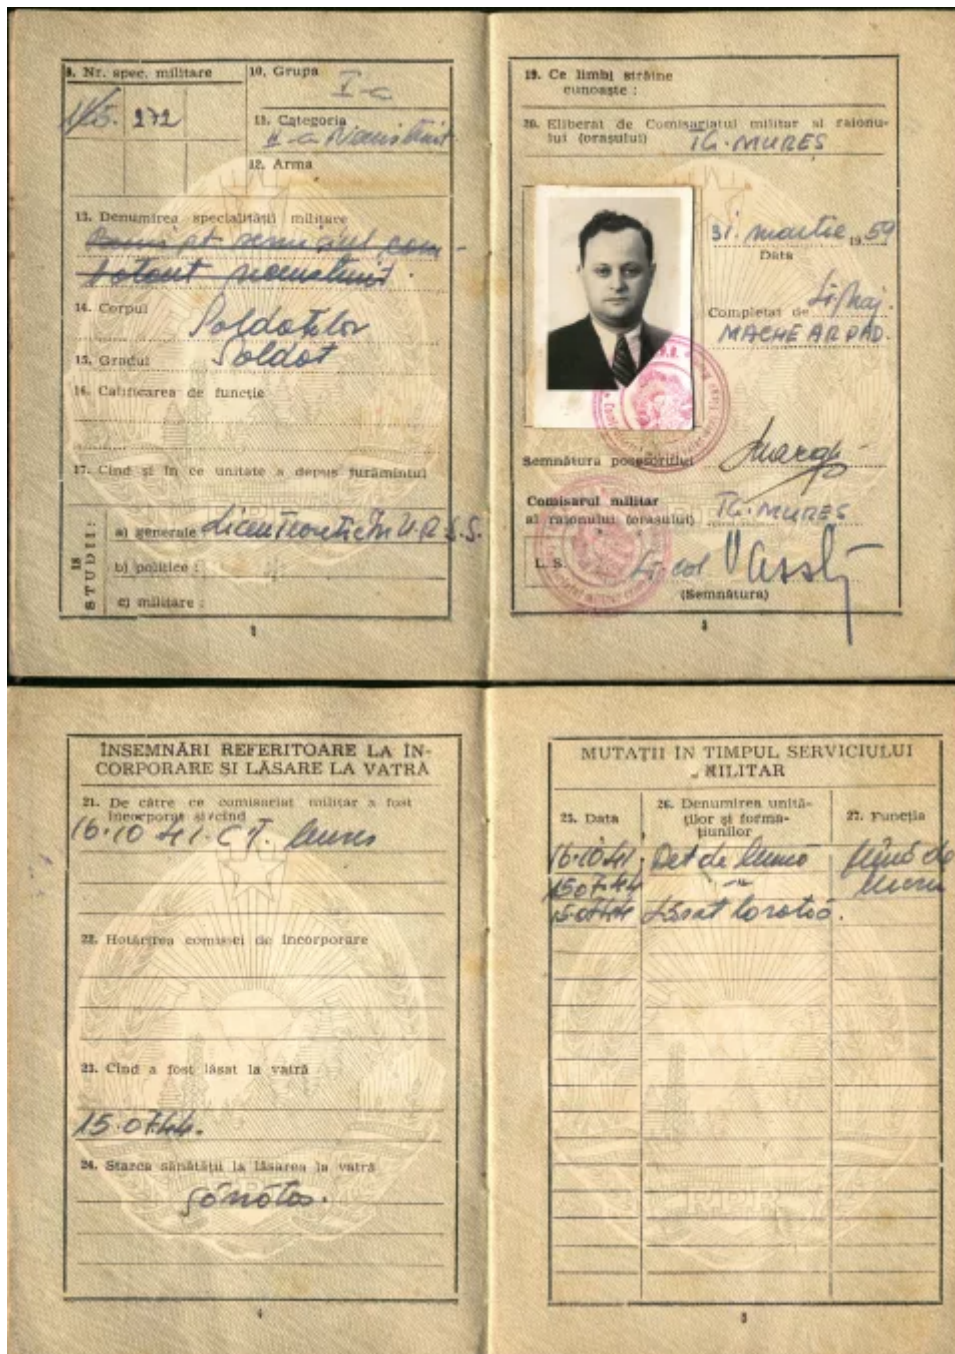 9. Nr. spec. militare
272
10. Grupa
I-a
11. Categoria
II-a
12. Arma
13. Denumirea specialității militare
14. Corpul
Soldaților
15. Gradul
Soldat
16. Calificarea de funcție
17. Cînd și în ce unitate a depus jurămîntul
18 STUDII:
a) generale Liceu Teoretic în U.R.S.S.
b) politice :
c) militare :
19. Ce limbi străine
cunoaște :
20. Eliberat de Comisariatul militar al raionu-
lui (orașului) TG. MUREȘ
31. martie 1959
Data
Completat de Lt. Maj.
MACHE ARPAD.
Semnătura posesorului
Comisarul militar
al raionului (orașului) TG. MUREȘ
L. S. Lt. col
(Semnătura)
3
ÎNSEMNĂRI REFERITOARE LA ÎN-
CORPORARE ȘI LĂSARE LA VATRĂ
21. De către ce comisariat militar a fost
încorporat și cînd
16.10 41. C.T. Mures
22. Hotărîrea comisiei de încorporare
23. Cînd a fost lăsat la vatră
15.07.44.
24. Starea sănătății la lăsarea la vatră
sănătos.
4
MUTAȚII ÎN TIMPUL SERVICIULUI
MILITAR
25. Data
26. Denumirea unită-
ților și forma-
țiunilor
27. Funcția
16.10 41. Det de muncă până de
15.07.44 -"- lucru
15.07.44 Lăsat la vatră.
5